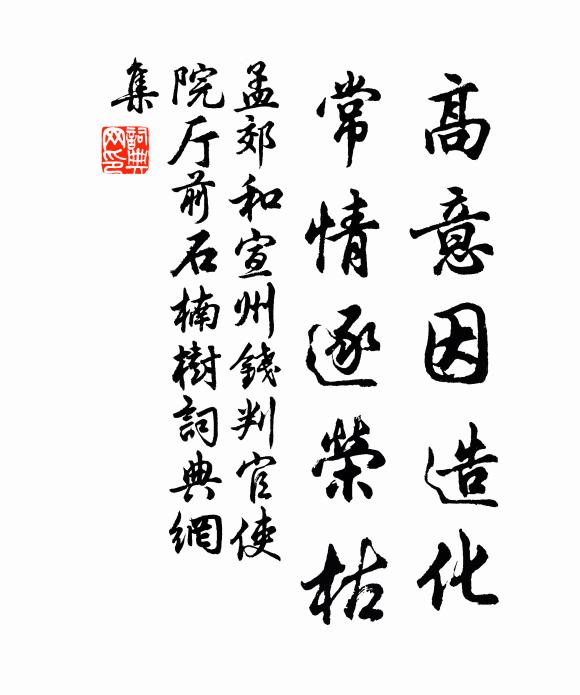 高意因造化
常情逐榮枯
孟郊和宣州錢判官使
院厅前石楠樹詞典網
集
詞典
网印